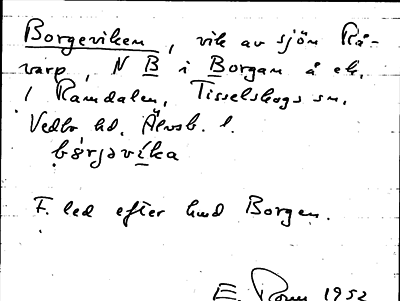 Borgeviken, vik av sjön Rå-
varp, N B i Borgan å ek.
1 Ramdalen, Tisselskogs sn.
Vedbo hd, Älvsb. l.
bǫrjəvika
F. led efter hmd Borgen.
E. 1952